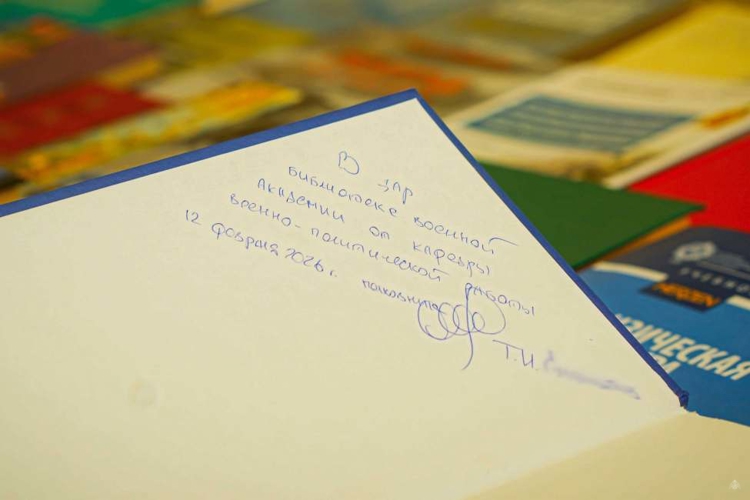 В дар
библиотеке военной
академии от кафедры
военно-политической работы
12 февраля 2026 г. полковник
Т.И.
УЧЕБНО
ИЗИЧЕСКАЯ
РА